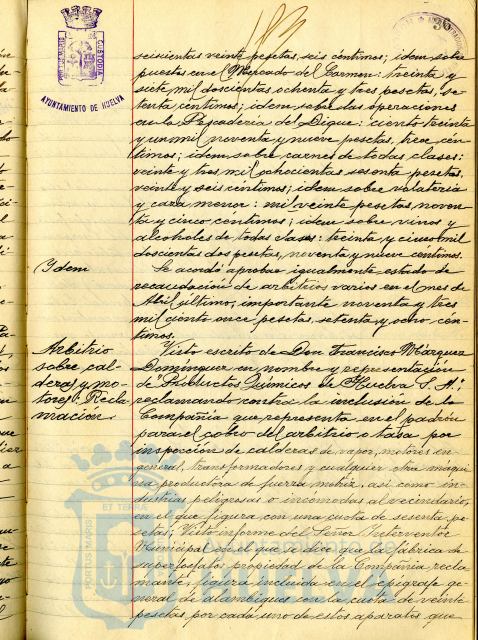 183
36
CUSTODIA
AYUNTAMIENTO DE HUELVA
seiscientas veinte pesetas, seis céntimos; idem sobre
puestos en el Mercado del Carmen: treinta y
siete mil doscientas ochenta y tres pesetas, se-
tenta céntimos; idem sobre las operaciones
en la Pescadería del Dique: ciento treinta
y un mil noventa y nueve pesetas, trece cén-
timos; idem sobre carnes de todas clases:
veinte y tres mil ochocientas sesenta pesetas,
veinte y seis céntimos; idem sobre volatería
y caza menor: mil veinte pesetas noven-
ta y cinco céntimos; idem sobre vinos y
alcoholes de todas clases: treinta y cinco mil
doscientas dos pesetas, noventa y nueve céntimos.
Ydem
Se acordó aprobar igualmente estado de
recaudación de arbitrios varios en el mes de
Abril último, importante noventa y tres
mil ciento once pesetas, setenta y ocho cén-
timos.
Arbitrio
sobre cal-
deras y mo-
tores: Recla-
mación.
Visto escrito de Don Francisco Márquez
Dominguez en nombre y representación
de "Productos Químicos de Huelva S. A."
reclamando contra la inclusión de la
Compañía que representa en el padrón
para el cobro del arbitrio o tasa por
inspección de calderas de vapor, motores en
general, transformadores y cualquier otra máqui-
na productora de fuerza motriz, así como in-
dustrias peligrosas o incómodas al vecindario,
en el que figura con una cuota de sesenta pe-
setas; Visto informe del Señor Interventor
Municipal en el que se dice que la fábrica de
superfosfatos propiedad de la Compañía recla-
mante, figura incluida en el epígrafe ge-
neral de alambiques con la cuota de veinte
pesetas por cada uno de estos aparatos que
ET TERRAE
PORTUS MARIS